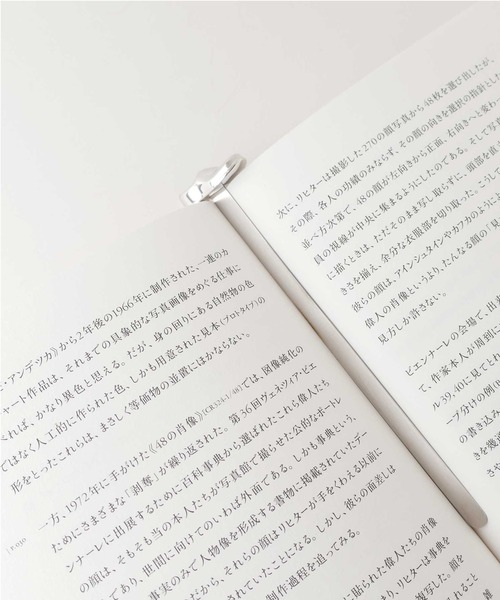 ミ・アンデッカ》から2年後の1966年に制作された、一連のカ
ャート作品は、それまでの具象的な写真画像をめぐる仕事に
くれば、かなり異色と思える。だが、身の回りにある自然物の色
ではなく人工的に作られた色、しかも用意された見本(プロトタイプ)の
形をとったこれらは、まさしく等価物の並置にほかならない。
一方、1972年に手がけた《48の肖像》[CR:324-1/48]では、図像純化の
ためにさまざまな「剥奪」が繰り返された。第36回ヴェネツィア・ビエ
ンナーレに出展するために百科事典から選ばれたこれら偉人たち
の顔は、そもそも当の本人たちが写真館で撮らせた公的なポートレ
であり、世間に向けてのいわば外面である。しかも事典という、
事実のみで人物像を形成する書物に掲載されていたデー
だから、それらの顔はリヒターが手をくわえる以前に
されていたことになる。しかし、彼らの面差しは
制作過程を追ってみる。
に貼られた偉人たちの肖像
り、リヒターは事典を
複写した。顔を
れること
次に、リヒターは撮影した270の顔写真から48枚を選び出したが、
その際、各人の功績のみならず、その顔の向きを選択の指針とし
並べ方次第で、48の顔が左向きから正面、右向きへと変わ
員の視線が中央に集まるようにしたのである。そして写真
に描くときは、ただそのまま写し取らずに、頭部を直
きさを揃え、余分な衣服部を切り取った。こうして
彼らの顔は、アインシュタインやカフカのように
偉人の肖像というより、たんなる顔の「見
見方しか許さない。
ビエンナーレの会場で、出
て、作家本人が削到
ル39、40に見てと
ープ分けの
の書き込
きを幾
さや